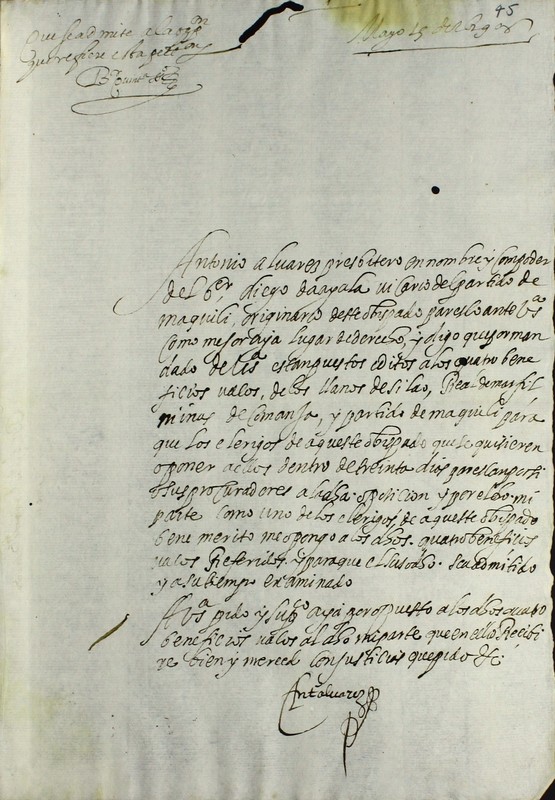 45
Que se admite a la opp.on
que refiere esta petiçion
Mayo 15 de
Antonio aluarez presbitero en nombre y con poder
del Br diego de ayala vicario del partido de
maquili, originario deste obispado paresco ante Vs.a
como mejor aya lugar de derecho, y digo que por man
dado de Vs.a estan puestos editos a los quatro bene
ficios vacos, de los llanos de silao, Real de marfil
minas de comanja, y partido de maquili para
que los clerigos de aqueste obispado que se quisieren
oponer a ellos dentro de treinta dias parescan por si
o sus procuradores a la dha oposicion y por el dho mi
parte como uno de los clerigos de aqueste obispado
bene merito me opongo a los dhos. quatro beneficios
vacos Referidos y para que el suso dho. sea admitido
y a su tiempo examinado
A Vs.a pido y sup.co aya por opuesto a los dhos quatro
beneficios vacos al dho mi parte que en ello Recibi
re bien y merced con justicia que pido &c
Ant.o aluarez